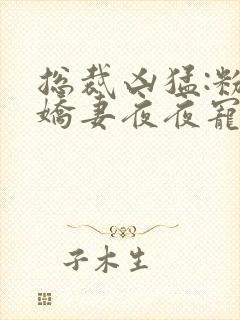 总裁凶猛:粉
娇妻夜夜宠
子木生